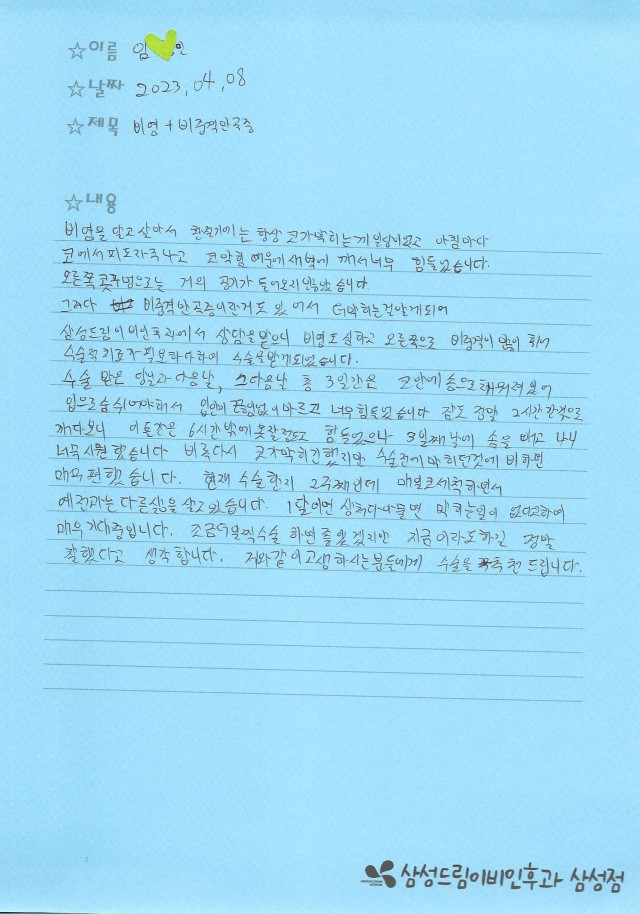 ☆이름 임 민
☆날짜 2023.04.08
☆제목 비염 + 비중격만곡증
☆내용
비염을 달고 살아서 환절기에는 항상 코가막히는게 일상이었고 아침마다
코에서 피도자주나고 코막힘 때문에 새벽에 깨서 너무 힘들었습니다.
오른쪽 콧구멍으로는 거의 공기가 들어오지 않았습니다
그러다 비중격만곡증이란거도 있어서 더막히는걸알게되어
삼성드림이비인후과에서 상담을받으니 비염도심하고 오른쪽으로 비중격이 많이 휘어
수술적치료가 필요하다하여 수술을받게되었습니다.
수술 받은 당일과 다음날, 그다음날 총 3일간은 코안에 솜으로 채워져있어
입으로숨쉬어야해서 입안이 끊임없이 마르고 너무힘들었습니다 잠도 정말 2시간 간격으로
깨다보니 이틀간은 6시간밖에 못잘정도로 힘들었으나 3일째 낮에 솜을 빼고 나서
너무시원했습니다 비록다시 코가막히긴했지만 수술전에 막히던것에 비하면
매우 편했습니다. 현재 수술한지 2주째인데 매일코세척하면서
예전과는 다른삶을 살고있습니다. 1달이면 상처다나을면 막히는일이 없다고하여
매우기대중입니다. 조금더일찍수술 하면 좋았겠지만 지금이라도하길 정말
잘했다고 생각합니다. 저와같이고생하시는분들에게 수술을 꼭추천드립니다.
삼성드림이비인후과 삼성점